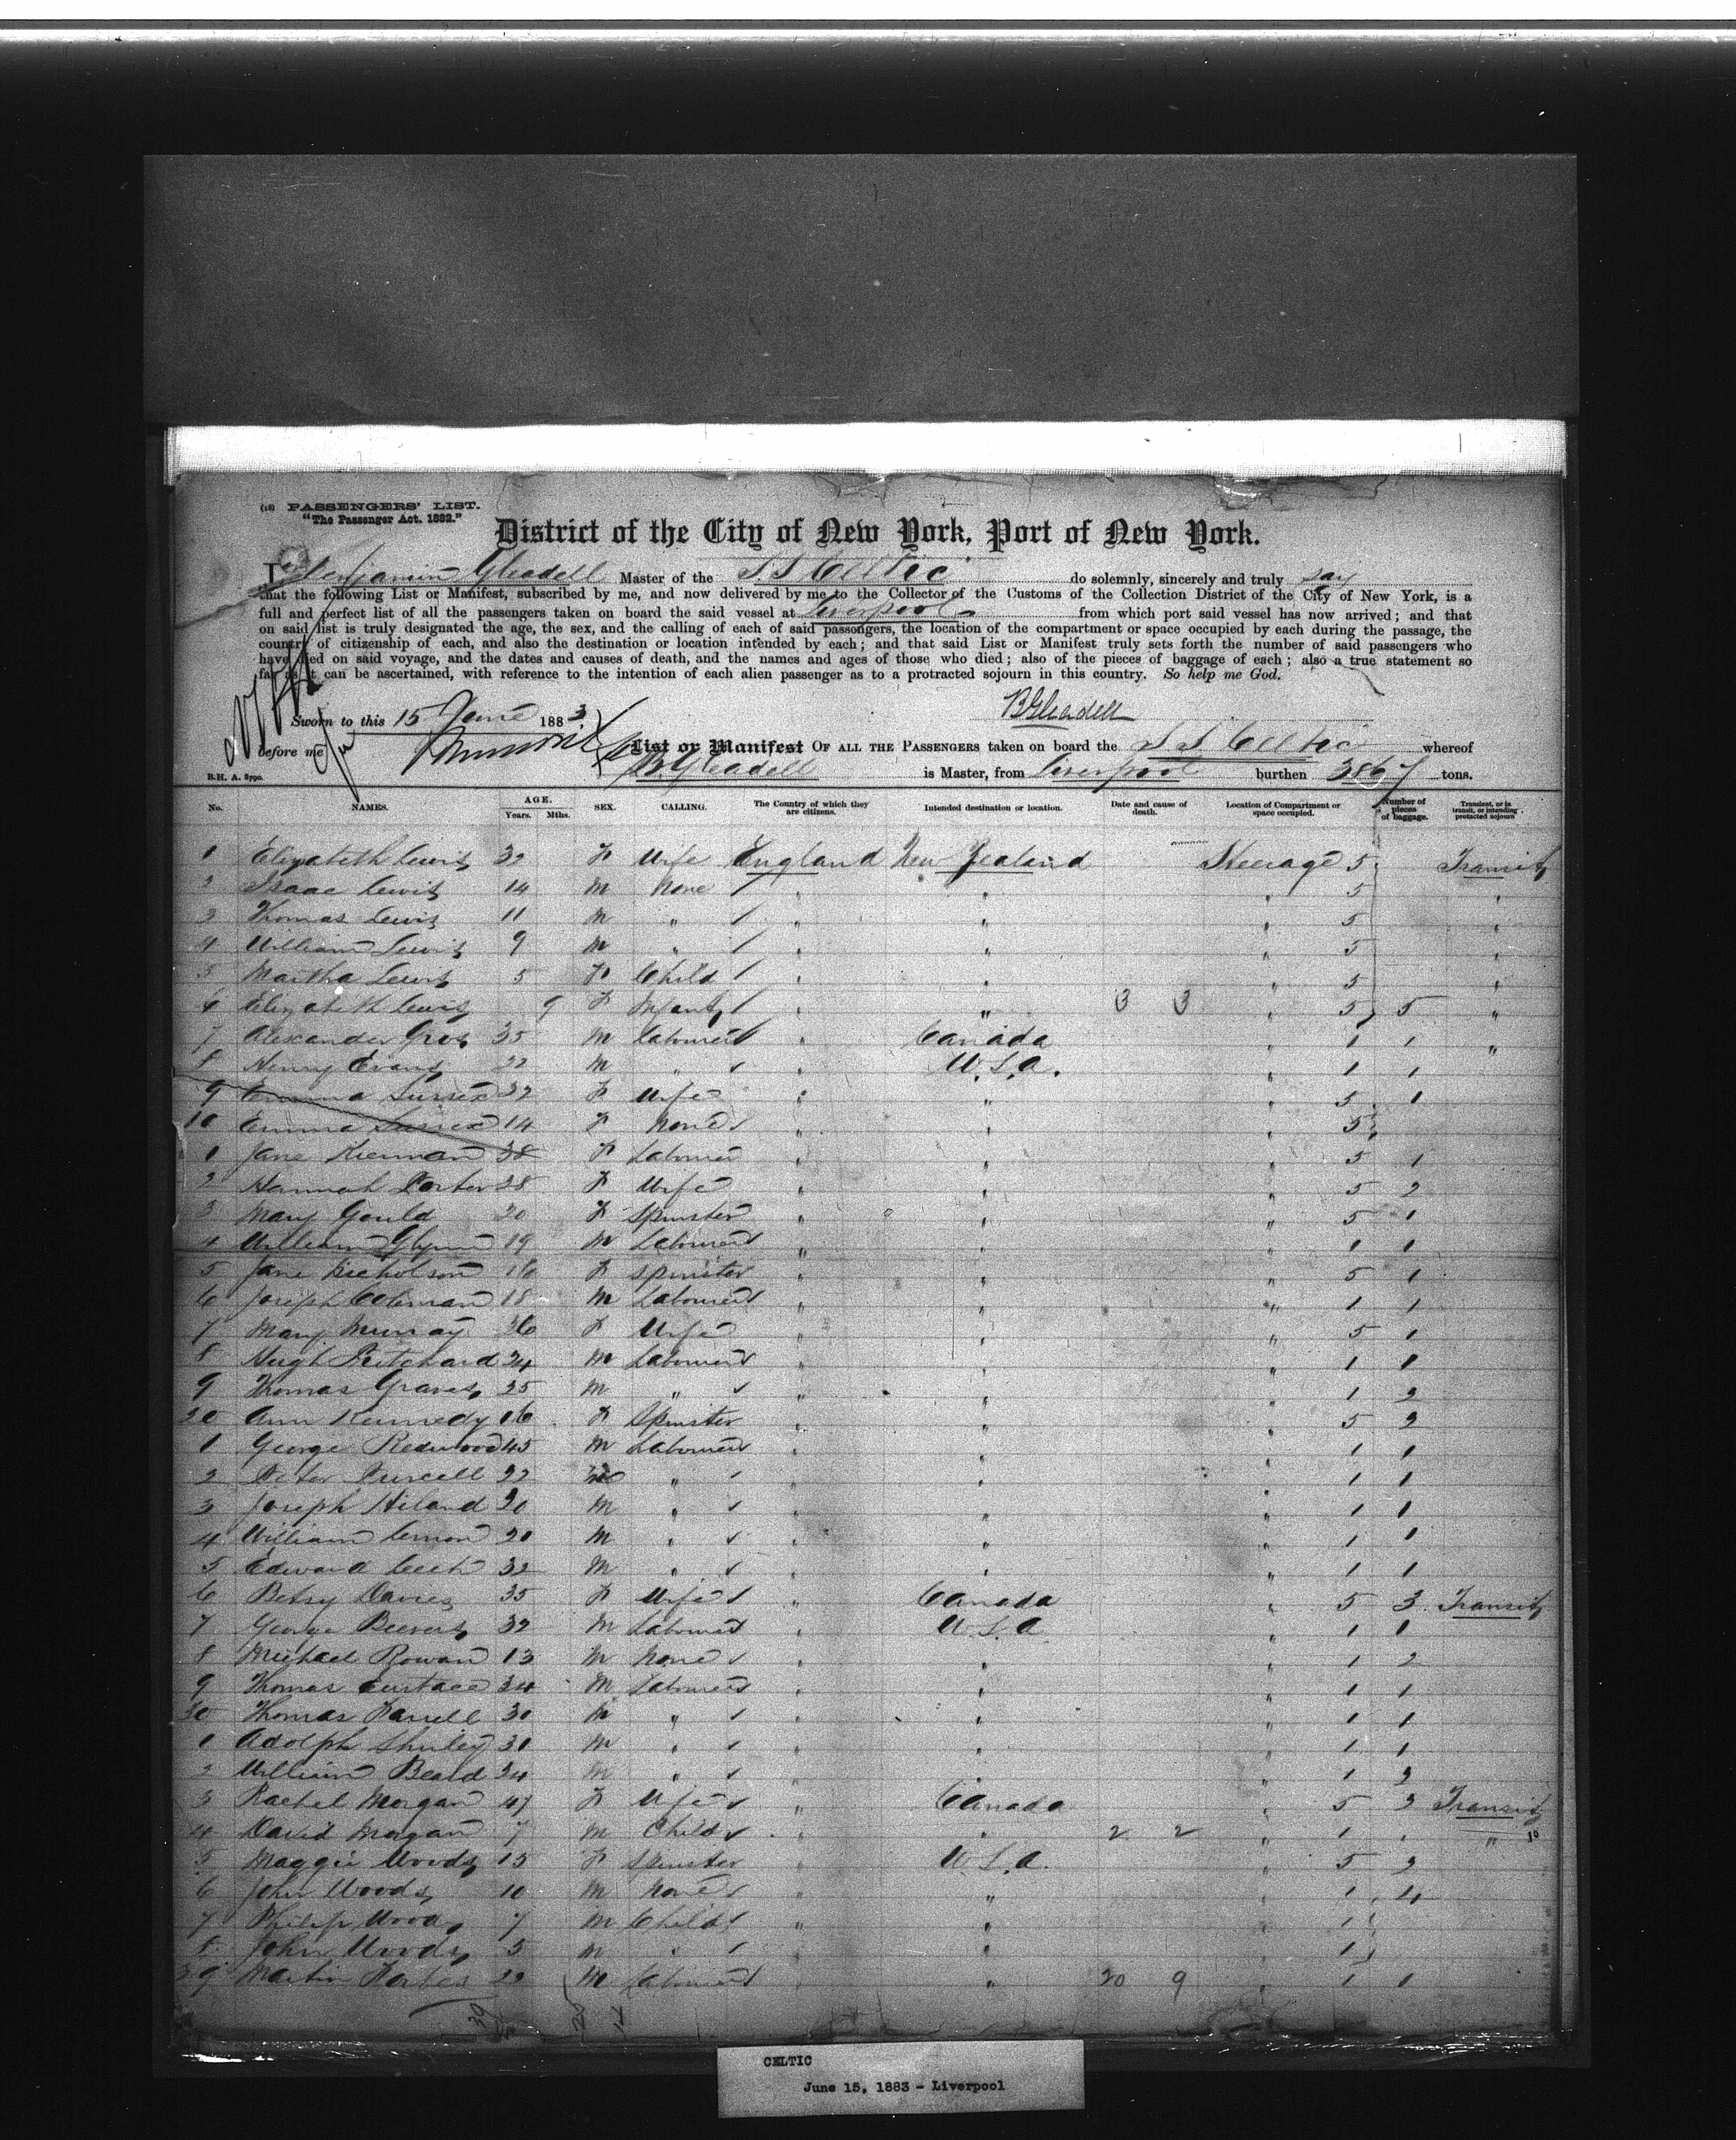 (18) PASSENGERS' LIST.
"The Passenger Act. 1882."
District of the City of New York, Port of New York.
I Benjamin Gleadell Master of the S.S Celtic do solemnly, sincerely and truly say
that the following List or Manifest, subscribed by me, and now delivered by me to the Collector of the Customs of the Collection District of the City of New York, is a
full and perfect list of all the passengers taken on board the said vessel at Liverpool from which port said vessel has now arrived; and that
on said list is truly designated the age, the sex, and the calling of each of said passengers, the location of the compartment or space occupied by each during the passage, the
country of citizenship of each, and also the destination or location intended by each; and that said List or Manifest truly sets forth the number of said passengers who
have died on said voyage, and the dates and causes of death, and the names and ages of those who died; also of the pieces of baggage of each; also a true statement so
far as it can be ascertained, with reference to the intention of each alien passenger as to a protracted sojourn in this country. So help me God.
B Gleadell
Sworn to this 15 June 1883
before me
List or Manifest OF ALL THE PASSENGERS taken on board the S S Celtic whereof
B. Gleadell is Master, from Liverpool burthen 3867 tons.
B.H. A. Sypo.
No. NAMES. AGE. Years. Mths. SEX. CALLING. The Country of which they are citizens. Intended destination or location. Date and cause of death. Location of Compartment or space occupied. Number of pieces of baggage. Transient, or in transit, or intending protracted sojourn
1 Elizabeth Lewis 32 F Wife England New Zealand Steerage 5 Transit
2 Isaac Lewis 14 M None " " " 5 "
3 Thomas Lewis 11 M " " " " 5 "
4 William Lewis 9 M " " " " 5 "
5 Martha Lewis 5 F Child " " " 5 "
6 Elizabeth Lewis 9 F Infant " " 3 3 " 5 5 "
7 Alexander 35 M Labourer " Canada " 1 1 "
8 Henry Evans 22 M " " U.S.A. " 1 1
9 Emma Sussex 32 F Wife " " " 5 1
10 Emma Sussex 14 F None " " " 5
1 Jane Kiernan 38 F Labourer " " " 5 1
2 Hannah Porter 28 F Wife " " " 5 2
3 Mary Gould 20 F Spinster " " " 5 1
4 William Glynn 19 M Labourer " " " 1 1
5 Jane Nicholson 18 F Spinster " " " 5 1
6 Joseph Coleman 18 M Labourer " " " 1 1
7 Mary Murray 36 F Wife " " " 5 1
8 Hugh Pritchard 24 M Labourer " " " 1 1
9 Thomas Graves 25 M " " " " 1 2
20 Ann Kennedy 16 F Spinster " " " 5 2
1 George Redwood 45 M Labourer " " " 1 1
2 Peter Purcell 22 M " " " " 1 1
3 Joseph Hiland 20 M " " " " 1 1
4 William Lemon 20 M " " " " 1 1
5 Edward Leech 32 M " " " " 1 1
6 Betsy Davies 35 F Wife " Canada " 5 3 Transit
7 George Beevers 32 M Labourer " U.S.A " 1 1
8 Michael Rowan 13 M None " " " 1 2
9 Thomas Eustace 34 M Labourer " " " 1 1
30 Thomas Farrell 30 M " " " " 1 1
1 Adolph 31 M " " " " 1 1
2 William Beald 24 M " " " " 1 2
3 Rachel Morgan 47 F Wife " Canada " 5 3 Transit
4 David Morgan 7 M Child " " 2 2 " 1 "
5 Maggie Woods 15 F Spinster " U.S.A. " 5 2
6 John Woods 10 M None " " " 1 4
7 Philip Woods 7 M Child " " " 1
8 John Woods 5 M " " " " 1
39 Martin Forbes 22 M Labourer " " 20 9 " 1 1
CELTIC
June 15, 1883 - Liverpool